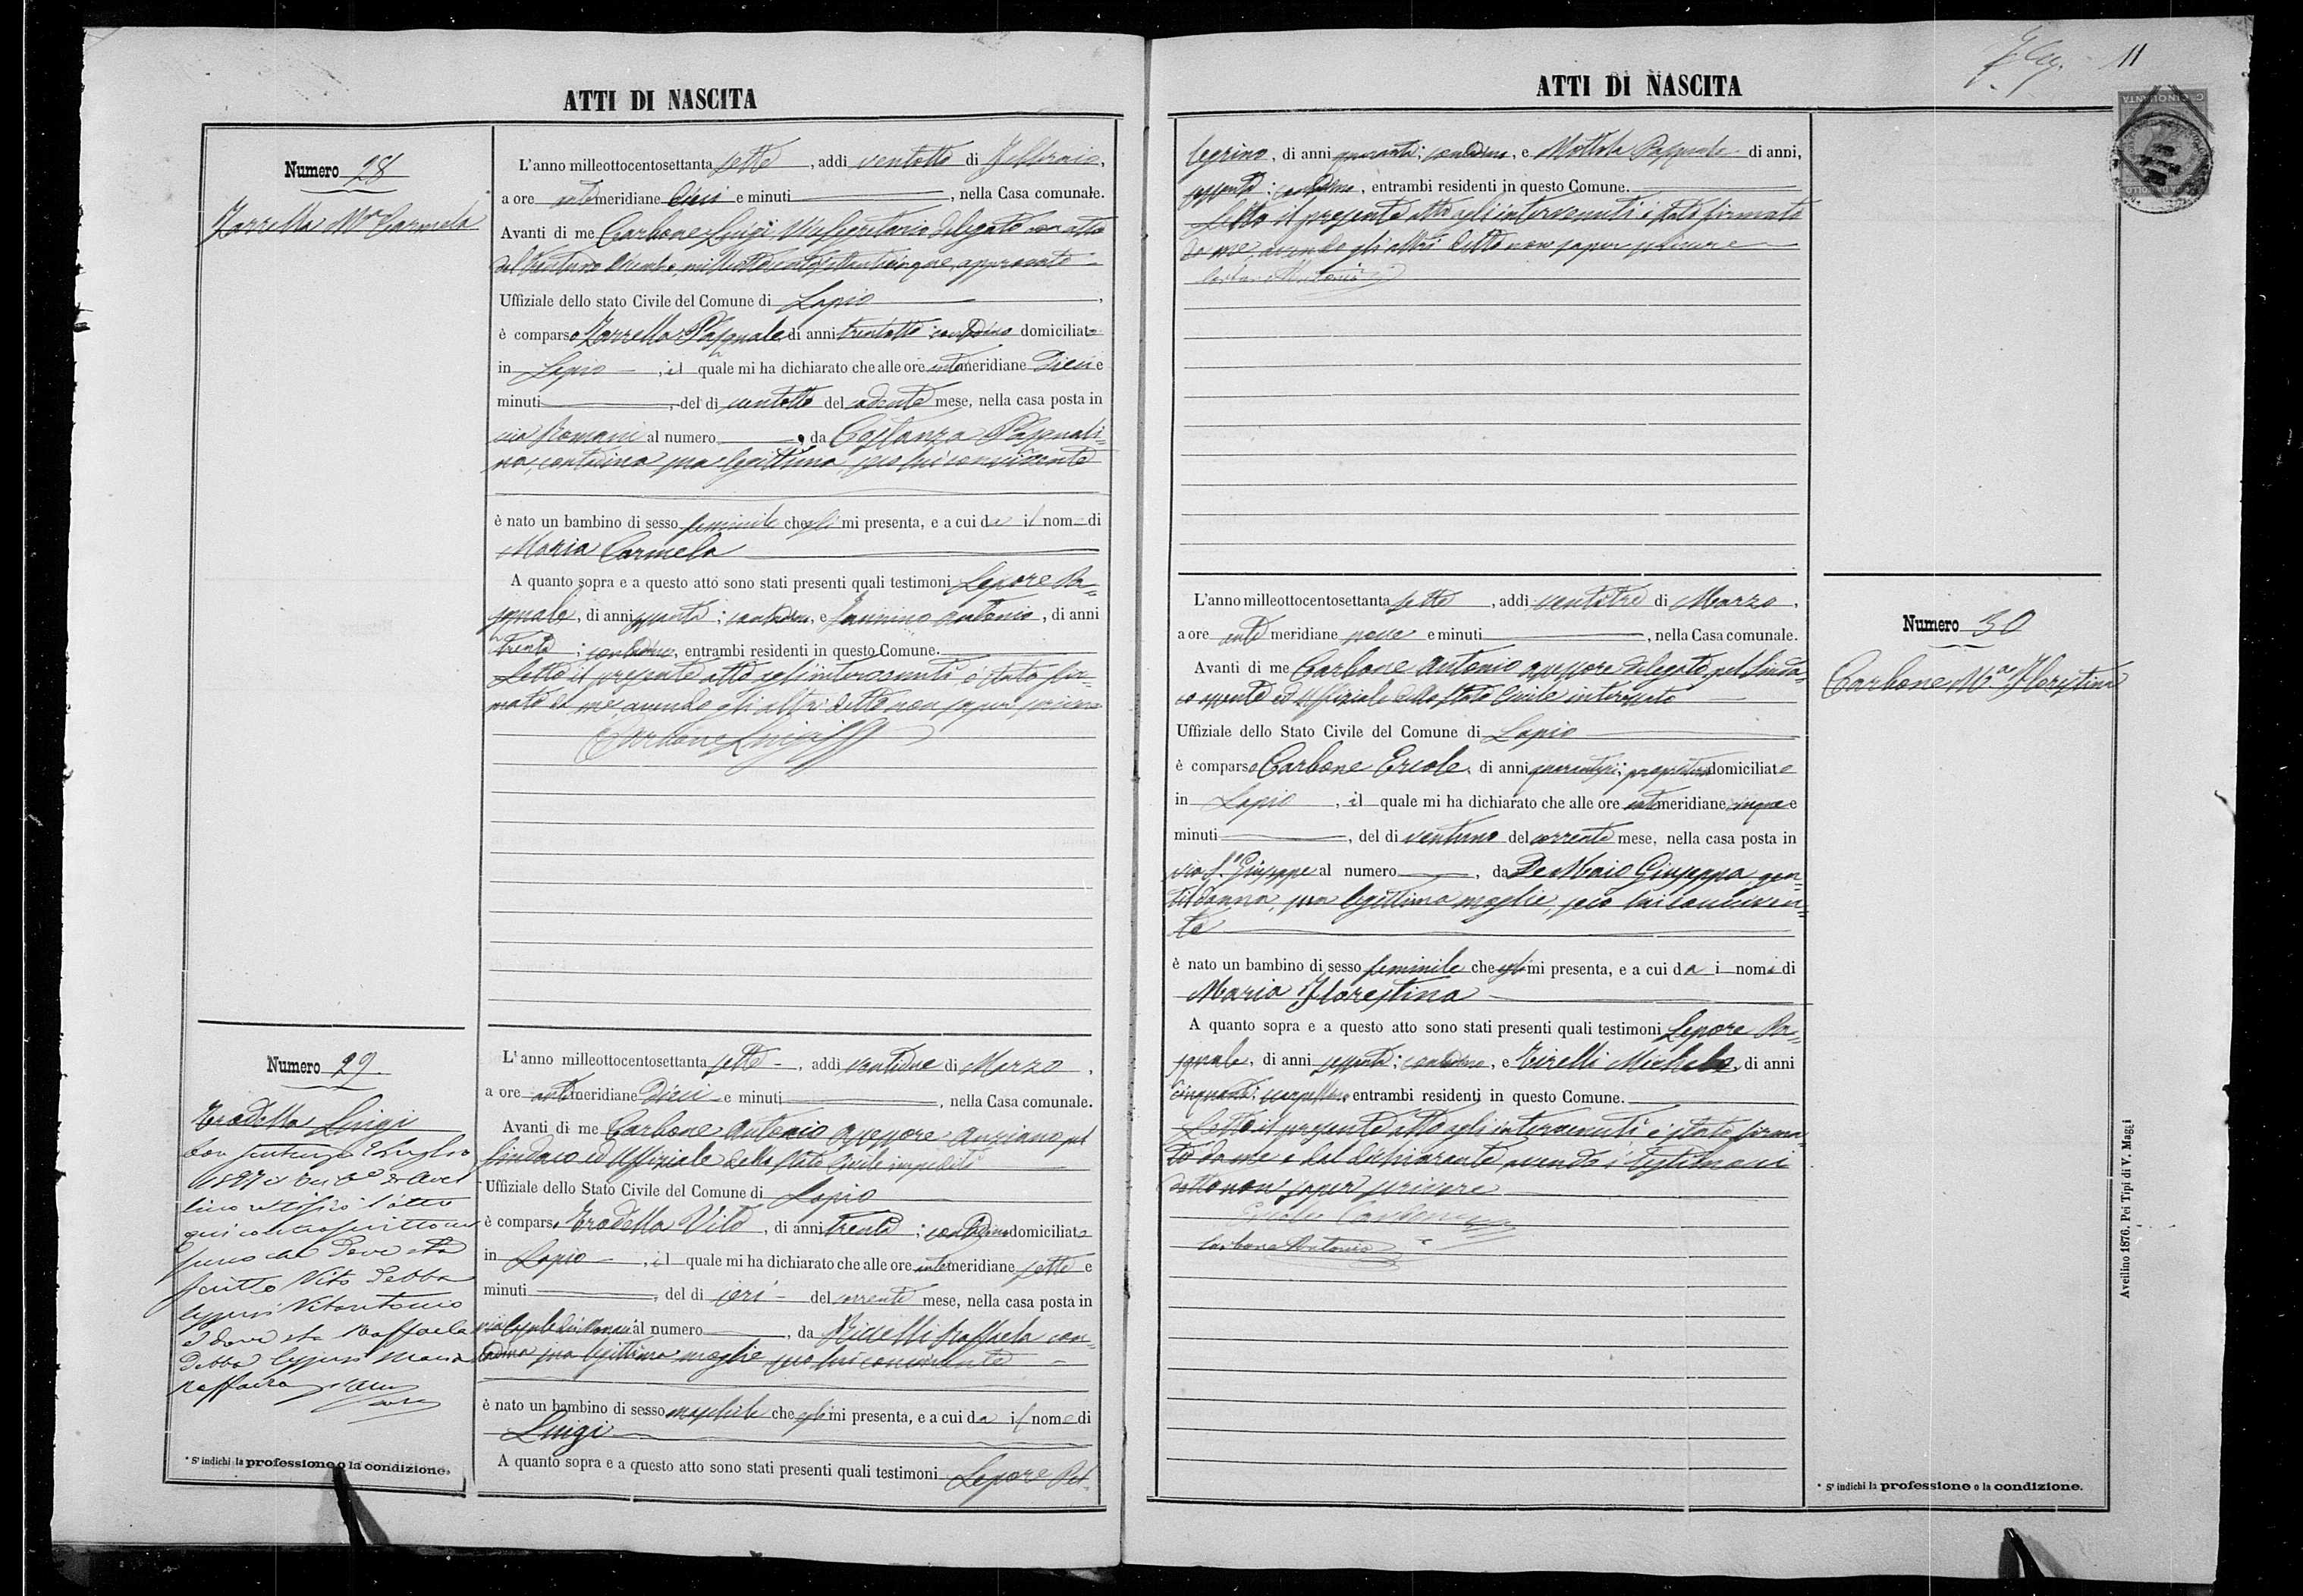 ATTI DI NASCITA
Numero 28
Zarrella Mª Carmela
L'anno milleottocentosettanta sette, addi ventotto di Febbraio,
a ore antemeridiane dieci e minuti, nella Casa comunale.
Avanti di me Carbone Luigi Vicesegretario delegato con atto
del trentuno Dicembre milleottocentosettantacinque, approvato
Uffiziale dello stato Civile del Comune di Lapio,
è comparso Zarrella Pasquale di anni trentotto contadino domiciliato
in Lapio, il quale mi ha dichiarato che alle ore antemeridiane dieci e
minuti, del di ventotto del andante mese, nella casa posta in
via Romani al numero, da Costanza Pasquali=
na, contadina sua legittima, seco lui convivente
è nato un bambino di sesso feminile che egli mi presenta, e a cui da il nome di
Maria Carmela
A quanto sopra e a questo atto sono stati presenti quali testimoni Lepore Pa=
squale, di anni sessanta; contadino, e Iannino Antonio, di anni
trenta; contadino, entrambi residenti in questo Comune.
Letto il presente atto agli intervenuti, è stato fir=
mato da me, avendo gli altri detto non saper scrivere
Carbone Luigi
Numero 29.
Erodella Luigi
Con sentenza Luglio
1897 il
lino rettificò l'atto
qui controscritto
deve sta
scritto Vito debba
leggersi Vitantonio
e dove sta Raffaela
debba leggersi Maria
Raffaela
L'anno milleottocentosettanta sette, addi ventidue di Marzo,
a ore antemeridiane dieci e minuti, nella Casa comunale.
Avanti di me Carbone Antonio assessore anziano pel
Sindaco ed Uffiziale dello Stato Civile impediti
Uffiziale dello Stato Civile del Comune di Lapio
è comparso Erodella Vito, di anni trenta; contadino domiciliato
in Lapio, il quale mi ha dichiarato che alle ore antemeridiane sette e
minuti, del di ieri del corrente mese, nella casa posta in
via al numero, da Riccelli Raffaela con=
tadina sua legittima moglie seco lui convivente
è nato un bambino di sesso maschile che egli mi presenta, e a cui da il nome di
Luigi
A quanto sopra e a questo atto sono stati presenti quali testimoni Lepore Pel=
* S' indichi la professione o la condizione.
11
ATTI DI NASCITA
CINQUANTA
legrino, di anni quaranta; contadino, e Mottola Pasquale di anni,
sessanta; contadino, entrambi residenti in questo Comune.
Letto il presente atto agli intervenuti è stato firmato
da me, avendo gli altri detto non saper scrivere
Carbone Antonio
L'anno milleottocentosettanta sette, addi ventitre di Marzo,
a ore ante meridiane nove e minuti, nella Casa comunale.
Avanti di me Carbone Antonio assessore delegato pel Sinda=
co assente ed Uffiziale dello Stato Civile interessato
Uffiziale dello Stato Civile del Comune di Lapio
è comparso Carbone Ercole, di anni quarantasei; proprietario domiciliato
in Lapio, il quale mi ha dichiarato che alle ore antemeridiane cinque e
minuti, del di ventuno del corrente mese, nella casa posta in
via S. Giuseppe al numero, da De Maio Giuseppa, gen=
tildonna, sua legittima moglie, seco lui conviven=
te
è nato un bambino di sesso feminile che egli mi presenta, e a cui da i nomi di
Maria Florestina
A quanto sopra e a questo atto sono stati presenti quali testimoni Lepore Pa=
squale, di anni sessanta; contadino, e Tirelli Michele, di anni
cinquanta; scarpellino entrambi residenti in questo Comune.
Letto il presente atto agli intervenuti è stato firma=
to da me e dal dichiarante avendo i testimoni
detto non saper scrivere
Ercole Carbone
Carbone Antonio
Numero 30
Carbone Mª Florestina
Avellino 1876. Pei Tipi di V. Maggi
* S' indichi la professione o la condizione.